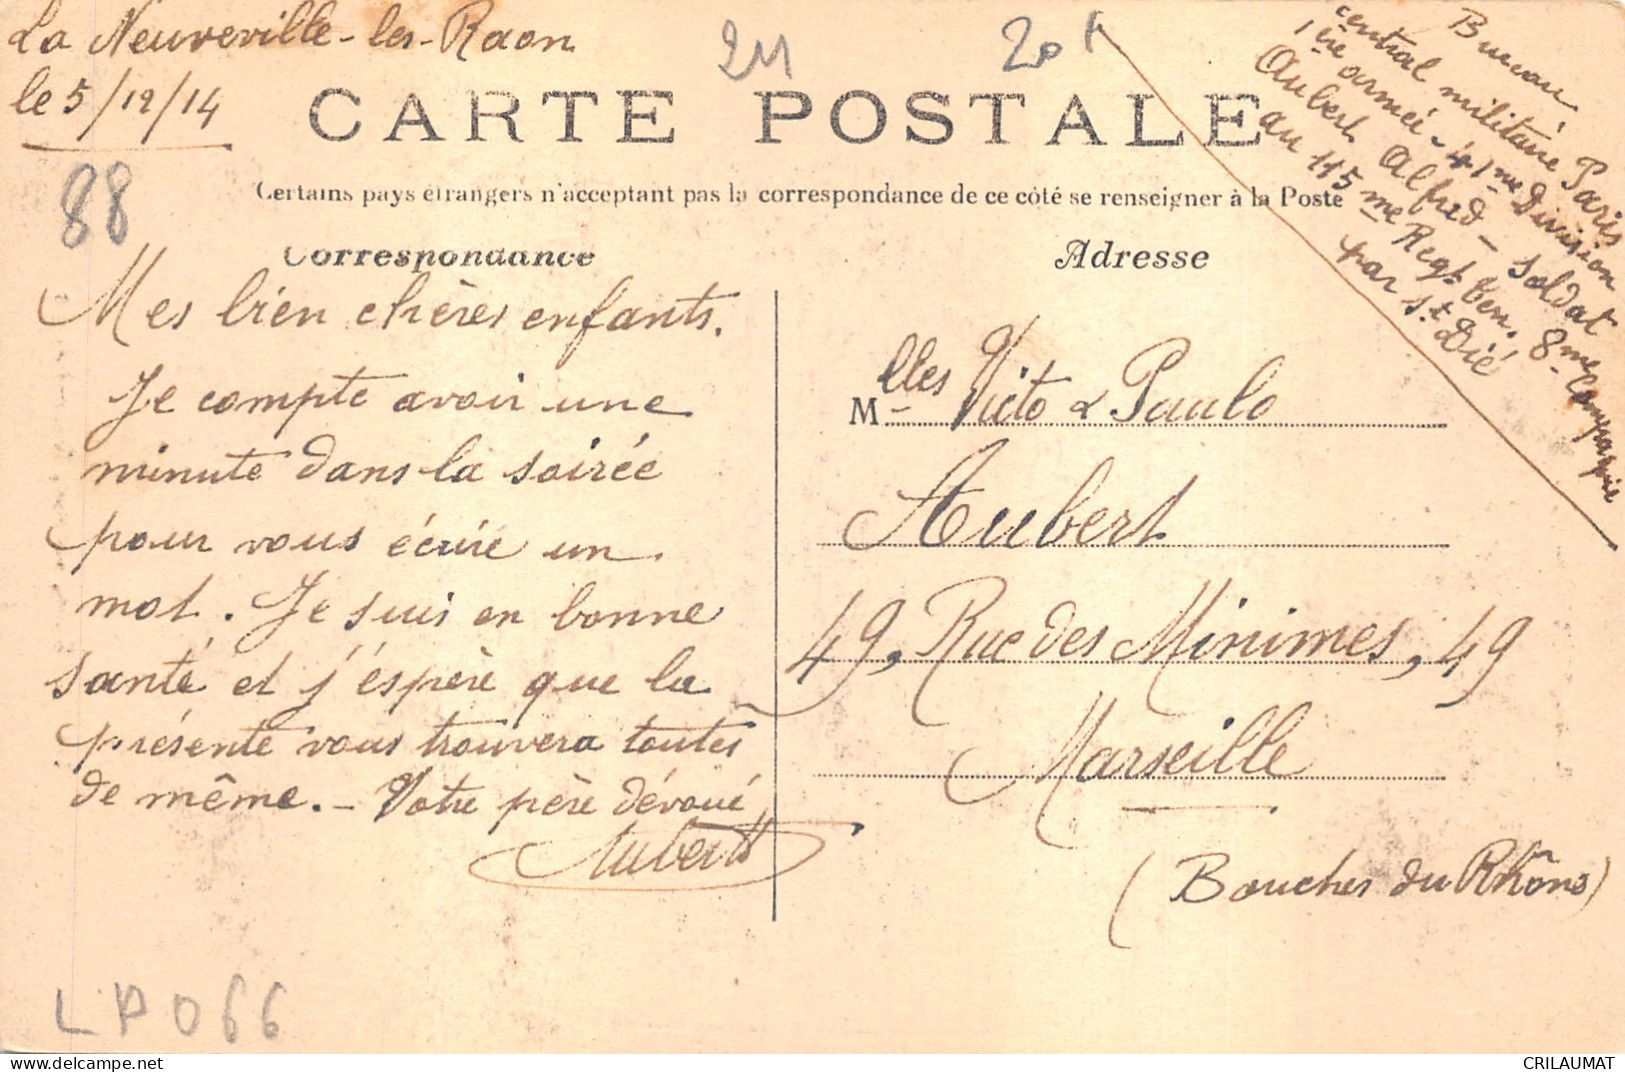 La Neuveville-les-Raon
le 5/12/14
88
211
20f
Bureau
central militaire Paris
1ère armée - 41me Division
Aubert Alfred - Soldat
au 115me Regt Ter. 8me Compagnie
par St Dié
CARTE POSTALE
Certains pays étrangers n'acceptant pas la correspondance de ce côté se renseigner à la Poste
Correspondance
Mes bien chères enfants.
Je compte avoir une
minute dans la soirée
pour vous écrire un
mot. Je suis en bonne
santé et j'éspère que la
présente vous trouvera toutes
de même. - Votre père dévoué
Aubert
Adresse
Mlles Victo & Paulo
Aubert
49, Rue des Minimes, 49
Marseille
(Bouches du Rhône)
LP066
delcampe.net
CRILAUMAT